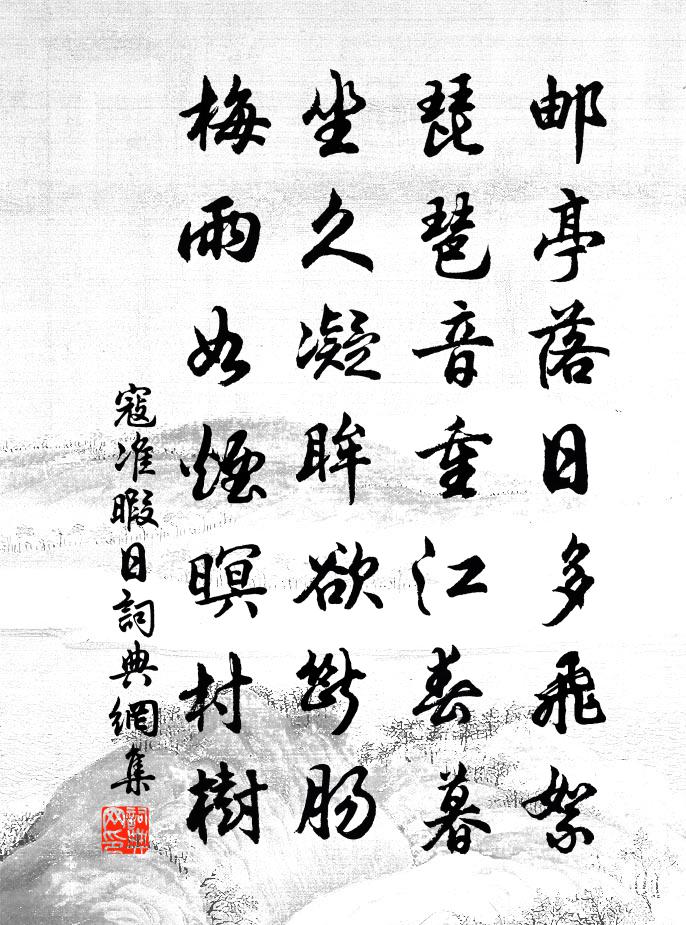 邮亭落日多飛絮
琵琶音重江春暮
坐久凝眸欲斷腸
梅雨如煙暝村樹
寇准暇日詞典網集